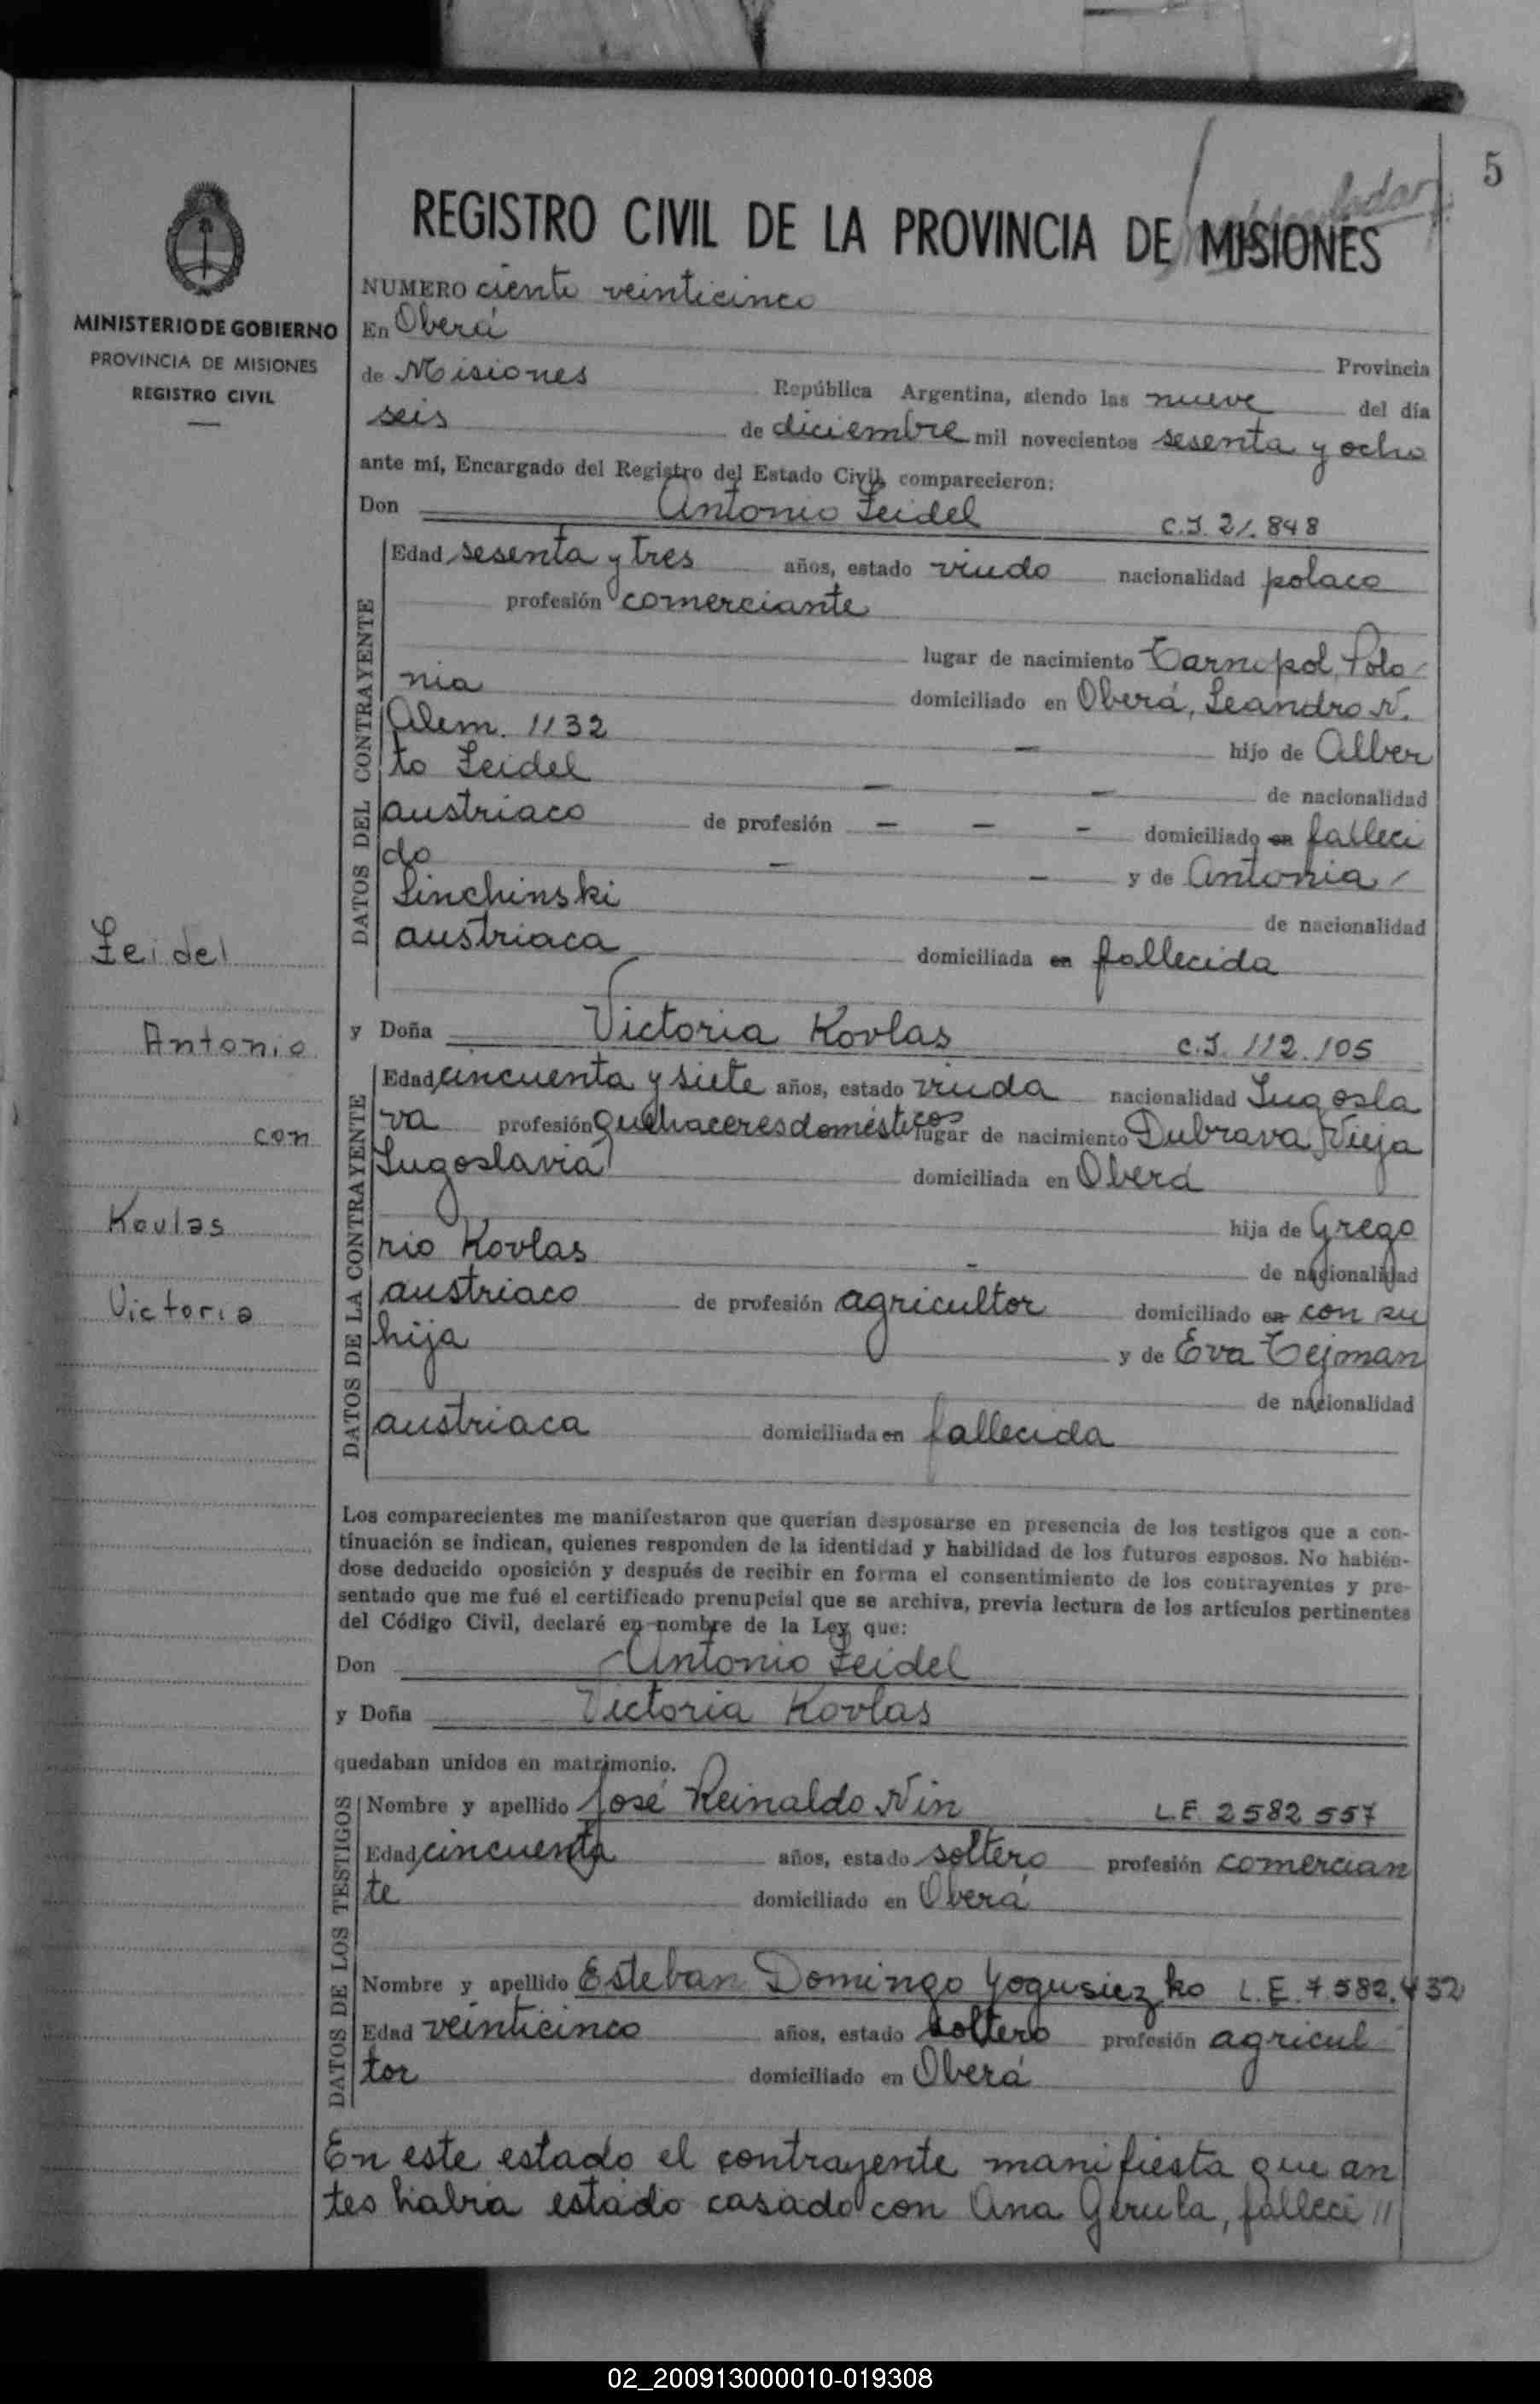 5
REGISTRO CIVIL DE LA PROVINCIA DE MISIONES
MINISTERIO DE GOBIERNO
PROVINCIA DE MISIONES
REGISTRO CIVIL
NUMERO ciento veinticinco
En Oberá
Provincia
de Misiones República Argentina, siendo las nueve del día
seis de diciembre mil novecientos sesenta y ocho
ante mí, Encargado del Registro del Estado Civil, comparecieron:
Don Antonio Zeidel C.I. 21.848
DATOS DEL CONTRAYENTE
Edad sesenta y tres años, estado viudo nacionalidad polaco
profesión comerciante
lugar de nacimiento Tarnopol, Polo
nia domiciliado en Oberá, Leandro N.
Alem. 1132
hijo de Alber
to Zeidel
de nacionalidad
austriaco de profesión - - - domiciliado en falleci
do - - y de Antonia
Linchinski
de nacionalidad
austriaca domiciliada en fallecida
Zeidel
Antonio
con
Kovlas
Victoria
y Doña Victoria Kovlas C.I. 112.105
DATOS DE LA CONTRAYENTE
Edad cincuenta y siete años, estado viuda nacionalidad Iugosla
va profesión quehaceres domésticos lugar de nacimiento Dubrava Vieja
Iugoslavia domiciliada en Oberá
hija de Grego
rio Kovlas -
de nacionalidad
austriaco de profesión agricultor domiciliado en con su
hija y de Eva Tejman
de nacionalidad
austriaca domiciliada en fallecida
Los comparecientes me manifestaron que querían desposarse en presencia de los testigos que a con-
tinuación se indican, quienes responden de la identidad y habilidad de los futuros esposos. No habién-
dose deducido oposición y después de recibir en forma el consentimiento de los contrayentes y pre-
sentado que me fué el certificado prenupcial que se archiva, previa lectura de los artículos pertinentes
del Código Civil, declaré en nombre de la Ley que:
Don Antonio Zeidel
y Doña Victoria Kovlas
quedaban unidos en matrimonio.
DATOS DE LOS TESTIGOS
Nombre y apellido José Reinaldo Nin L.E. 2582557
Edad cincuenta años, estado soltero profesión comercian
te domiciliado en Oberá
Nombre y apellido Esteban Domingo Yogusiezko L.E. 7.582.432
Edad veinticinco años, estado soltero profesión agricul
tor domiciliado en Oberá
En este estado el contrayente manifiesta que an
tes habia estado casado con Ana Gerula, falleci //
02_200913000010-019308